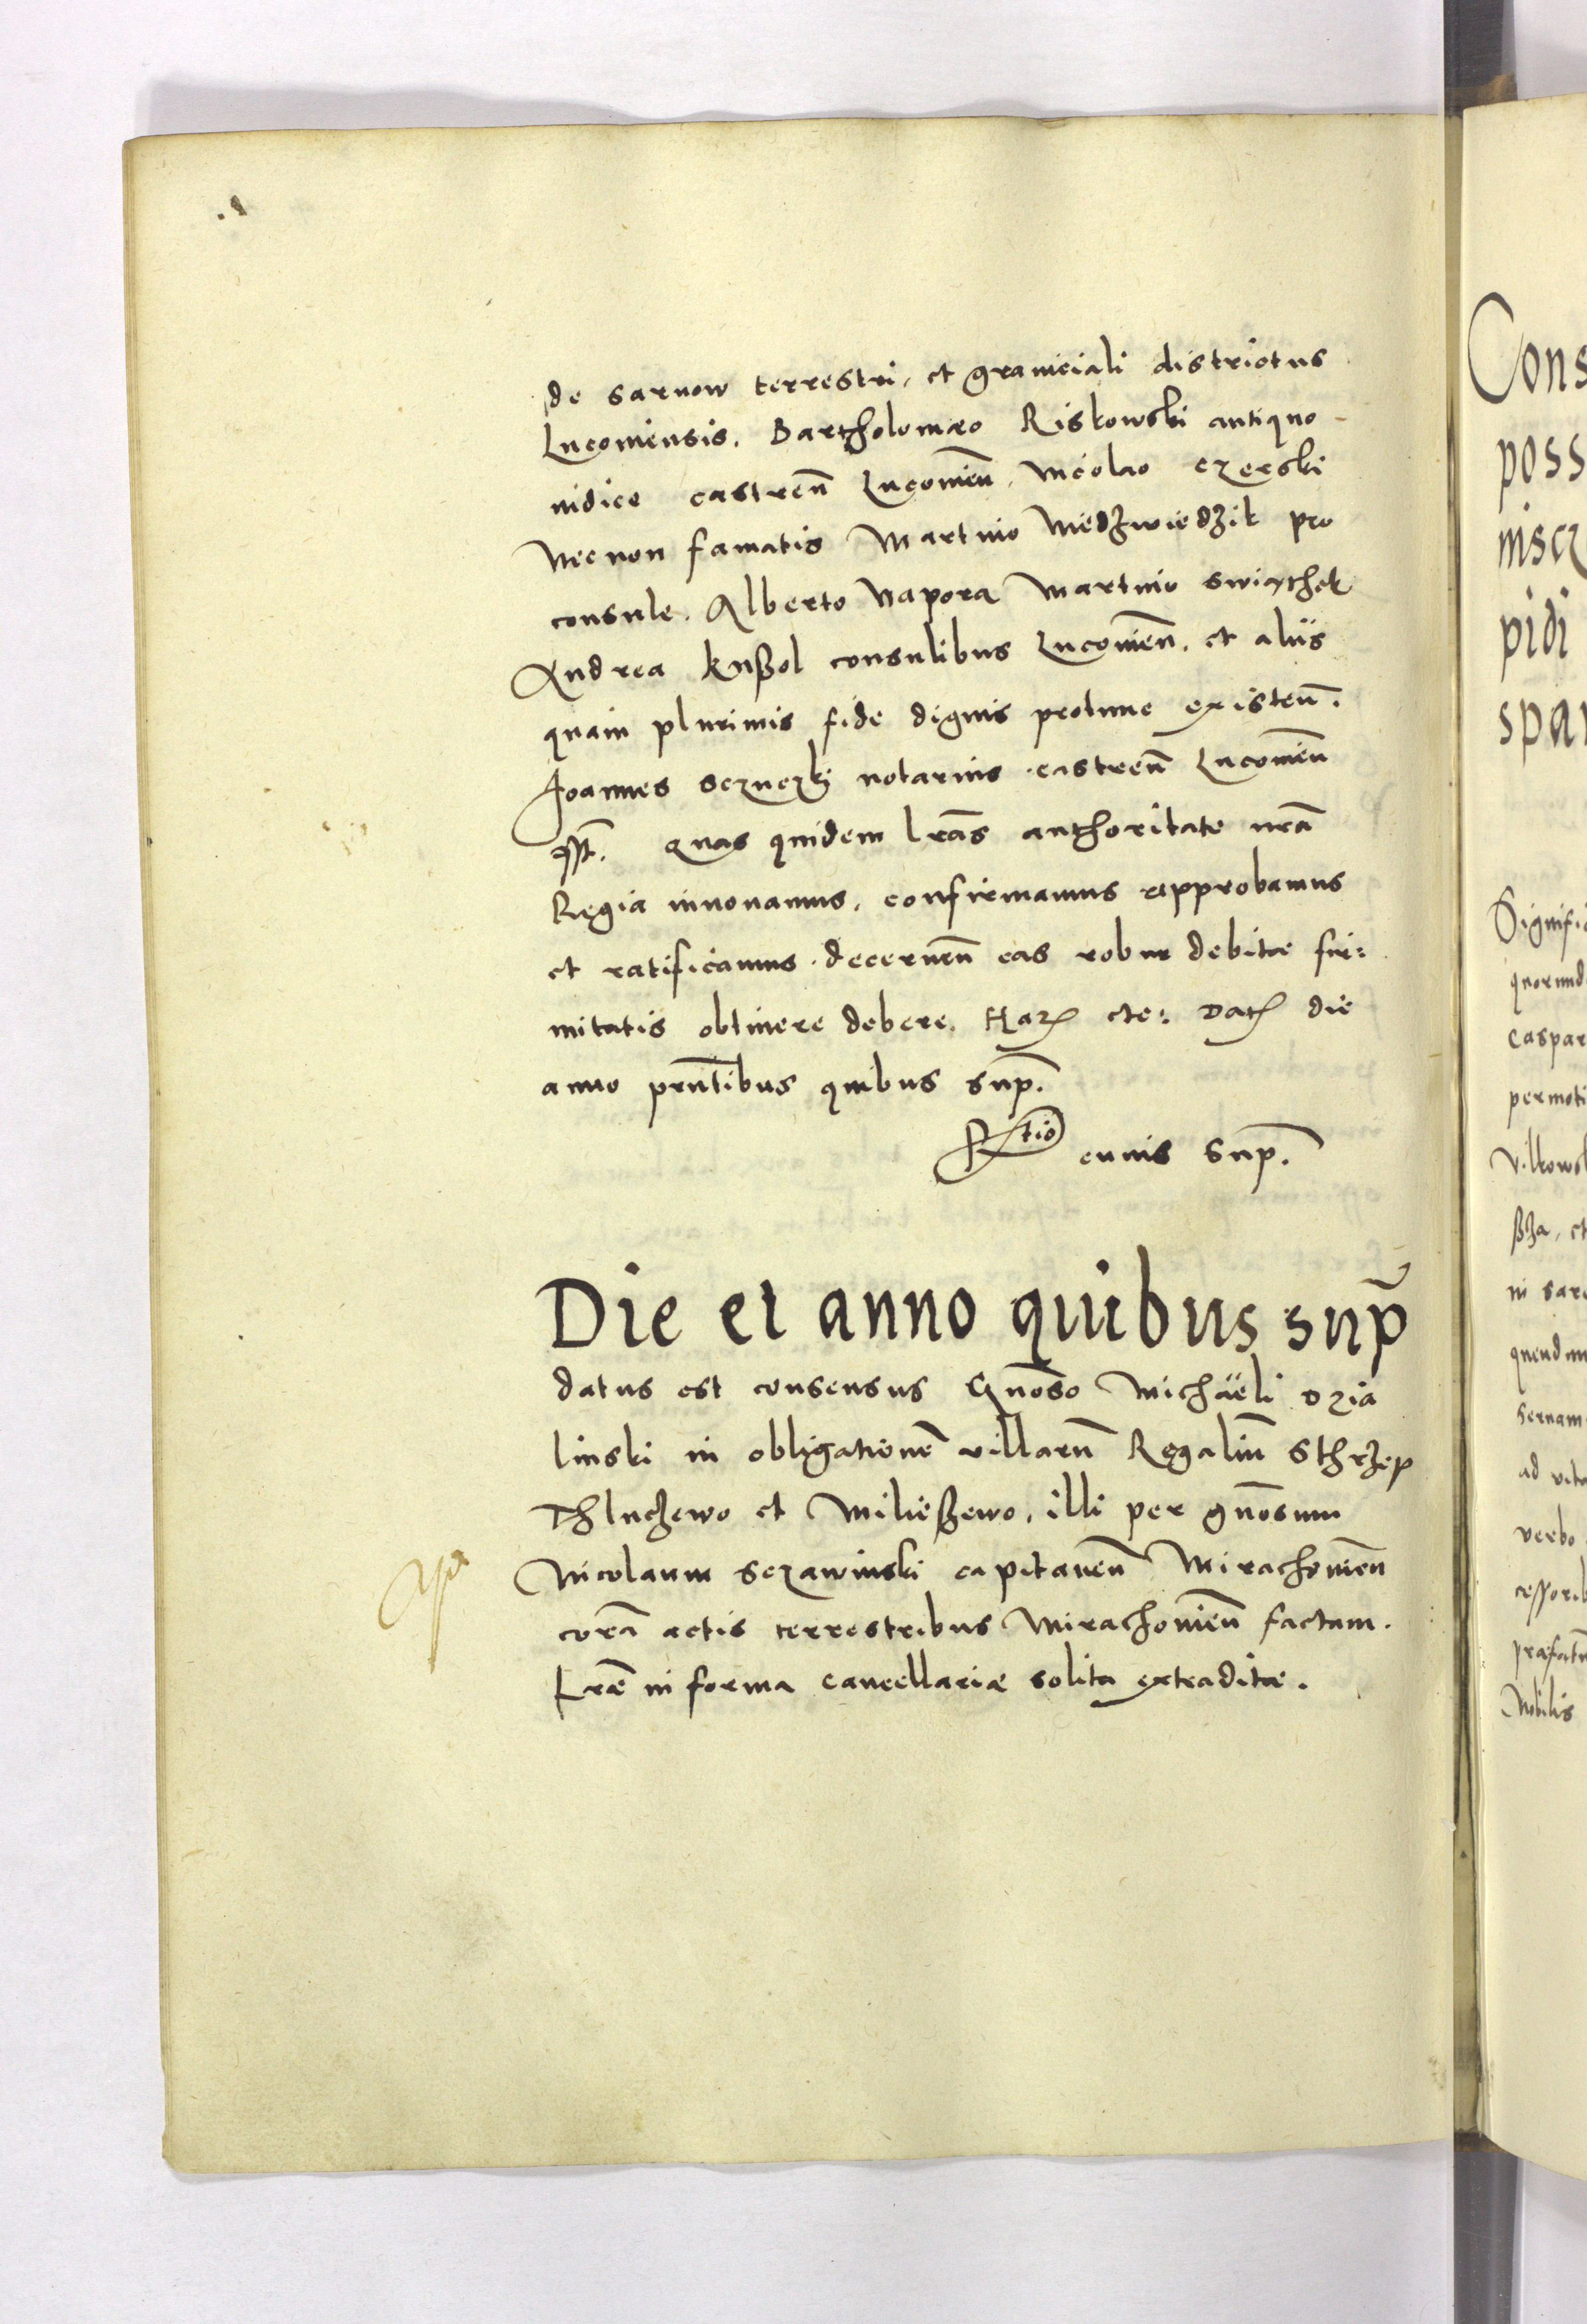 de Sarnow terrestri, et graniciali districtus
Lucoviensis, Bartholomæo Riskowski antiquo
iudice castreñ Lucovieñ, Nicolao Czerski
Necnon famatis Martino Niedzwiedzik pro
consule. Alberto Napora Martino Swiąthek
Andrea Kusßol consulibus Lucovieñ. et aliis
quam plurimis fide dignis protunc existeñ.
Joannes Sczuczki notarius castreñ Lucovieñ
sspt. Quas quidem lrãs authoritate nrã
Regia innovamus, confirmamus approbamus
et ratificamus. decerneñ eas robur debitæ fir:
mitatis obtinere debere. Harȝ etc: Datȝ die
anno prñtibus quibus sup̃.
Rtio cuius sup̃.
Die et anno quibus sup̃
datus est consensus Gñoso Michaëli Dzia
linski in obligationẽ villarũ Regaliũ Sthrzep
Thluczewo et Milieszewo, illi per gñosum
Nicolaum Sczawinski capitaneũ Mirachovieñ
corã actis terrestribus Mirachovieñ factam.
Lræ in forma cancellariæ solita extraditæ.
Cons
poss
niscz
pidi
spar
Signific
quorund
Caspar
permoti
Vilkowsk
ßka, et
in sare
quendam
Sernam
ad vita
verbo
cessorib
præfatũ
Nobilis